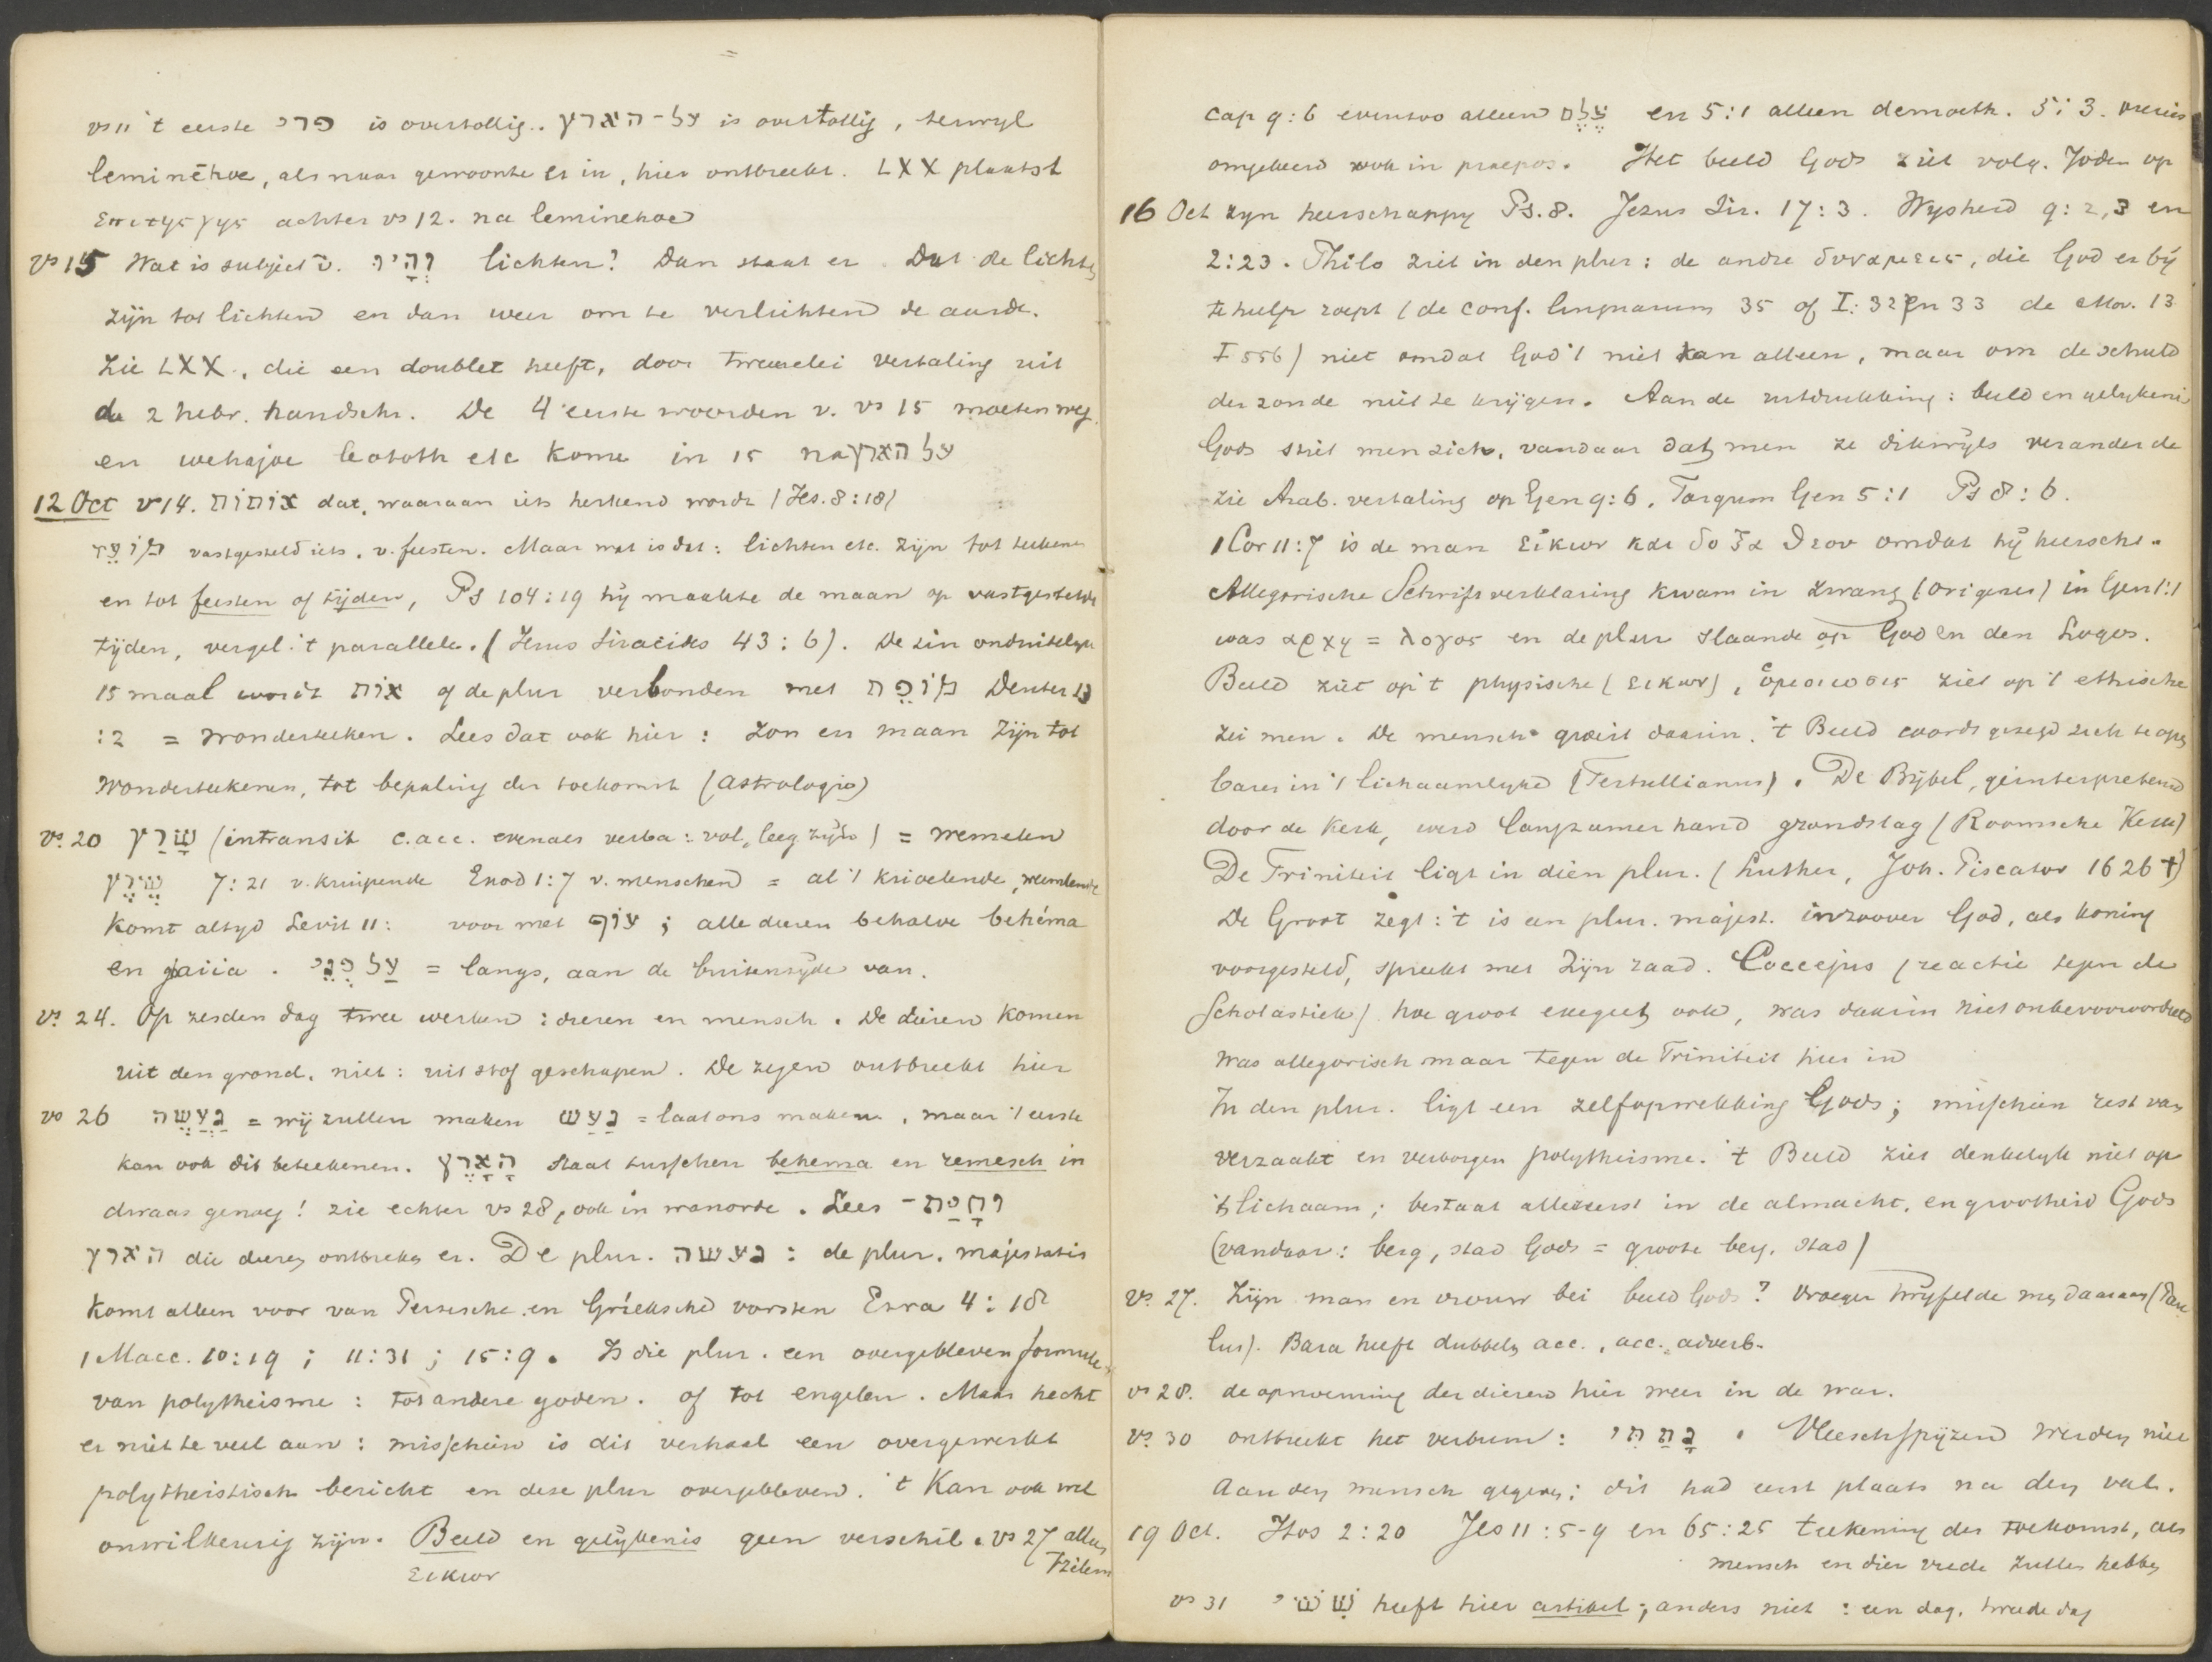 vs 11 't eerste פרי is overtollig. על-הארץ is overtollig, terwyl
leminéhoe, als naar gewoonte er in, hier ontbreekt. LXX plaatst
επι της γης achter vs 12. na leminehoe
vs 15 Wat is subject v. וְהָיוּ lichten? Dan staat er Dat de lichten
zijn tot lichten en dan weer om te verlichten de aarde.
Zie LXX, die een doublet heeft, door tweeerlei vertaling uit
de 2 hebr. handschr. De 4 eerste woorden v. vs 15 moeten weg
en wehajoe leototh etc kome in 15 na על הארץ
12 Oct v 14. אותות dat, waaraan iets herkend wordt (Jes. 8:18)
מוֹעֵד vastgesteld iets, v. feesten. Maar wat is dat: lichten etc. zijn tot teekenen
en tot feesten of tijden, Ps 104:19 hij maakte de maan op vastgestelde
tijden, vergel. 't parallele. (Jezus Siracides 43:6). De zin onduidelijk
15 maal wordt אות of de plur verbonden met מוֹפֵת Deuter 13
:2 = wonderteeken. Lees dat ook hier: Zon en maan zijn tot
wonderteekenen, tot bepaling der toekomst (astrologie)
vs. 20 שָׁרַץ (intransit c. acc. evenals verba: vol, leeg zijn) = wemelen
שֶׁרֶץ 7:21 v. kruipende Exod 1:7 v. menschen = al 't krioelende, wemelende
komt altyd Levit 11: voor met עוֹף; alle dieren behalve behéma
en gaiia. עַל פְּנֵי = langs, aan de buitenzijde van.
vs. 24. Op zesden dag twee werken: dieren en mensch. De dieren komen
uit den grond, niet: uit stof geschapen. De zegen ontbreekt hier
vs 26 נַעֲשֶׂה = wij zullen maken נַעַשׂ = laat ons maken, maar 't eerste
kan ook dit beteekenen. הָאָרֶץ staat tusschen behema en remesch in
dwaas genoeg! zie echter vs 28, ook in wanorde. Lees וְחַיַּת-
הארץ die dieren ontbreken er. De plur. נעשה: de plur. majestatis
komt alleen voor van Perzische en Grieksche vorsten Ezra 4:18
1 Macc. 10:19; 11:31; 15:9. Is die plur. een overgebleven formule
van polytheisme: tot andere goden. of tot engelen. Maar hecht
er niet te veel aan: misschien is dit verhaal een overgewerkt
polytheistisch bericht en deze plur overgebleven. 't Kan ook wel
onwillkeurig zijn. Beeld en gelijkenis geen verschil. vs 27 alleen
εικων tzelem
cap 9:6 evenzoo alleen צֶלֶם en 5:1 alleen demoeth. 5:3. precies
omgekeerd ook in praepos. Het beeld Gods ziet volg. Joden op
16 Oct zyn heerschappy Ps. 8. Jezus Sir. 17:3. Wysheid 9:2,3 en
2:23. Philo ziet in den plur: de andre δυναμεις, die God er bij
te hulp roept (de conf. linguarum 35 of I: 32 en 33 de Mov. 13
I 556) niet omdat God 't niet kan alleen, maar om de schuld
der zonde niet te krijgen. Aan de uitdrukking: beeld en gelykenis
Gods stiet men zich, vandaar dat men ze dikwijls veranderde
zie Arab. vertaling op Gen 9:6, Targum Gen 5:1 Ps 8:6.
1 Cor 11:7 is de man εἰκων και δοξα θεου omdat hij heerscht.
Allegorische Schriftverklaring kwam in zwang (Origenes) in Gen 1:1
was αρχη = λογος en de plur slaande op God en den Logos.
Beeld ziet op 't physische (εικων), ὁμοιωσις ziet op 't ethische
zei men. De mensch groeit daarin. 't Beeld wordt gezegd zich te open
baren in 't lichaamlyke (Tertullianus). De Bijbel, geinterpreteerd
door de Kerk, werd langzamerhand grondslag (Roomsche Kerk)
De Triniteit ligt in dien plur. (Luther, Joh. Piscator 1626 †)
De Groot zegt: 't is een plur. majest. God, als koning
voorgesteld, spreekt met zijn raad. Coccejus (reactie tegen de
Scholastiek) hoe groot exegeet ook, was daarin niet onbevooroordeeld
was allegorisch maar tegen de Triniteit hier in
In den plur. ligt een zelfopwekking Gods; misschien rest van
verzaakt en verborgen polytheisme. 't Beeld ziet denkelyk niet op
't lichaam; bestaat allereerst in de almacht, en grootheid Gods
(vandaar: berg, stad Gods = groote berg, stad)
vs. 27. Zijn man en vrouw bei beeld Gods? Vroeger twijfelde men daaraan (Pau
lus). Bara heeft dubbelen acc., acc. adverb.
vs 28. de opnoeming der dieren hier weer in de war.
vs. 30 ontbreekt het verbum: נָתַתִּי. Vleeschspijzen werden niet
aan den mensch gegeven; dit had eerst plaats na den val.
19 Oct. Hos 2:20 Jes 11:5-9 en 65:25 teekening der toekomst, als
mensch en dier vrede zullen hebben
vs 31 שִׁשִּׁי heeft hier artikel; anders niet: een dag, tweede dag